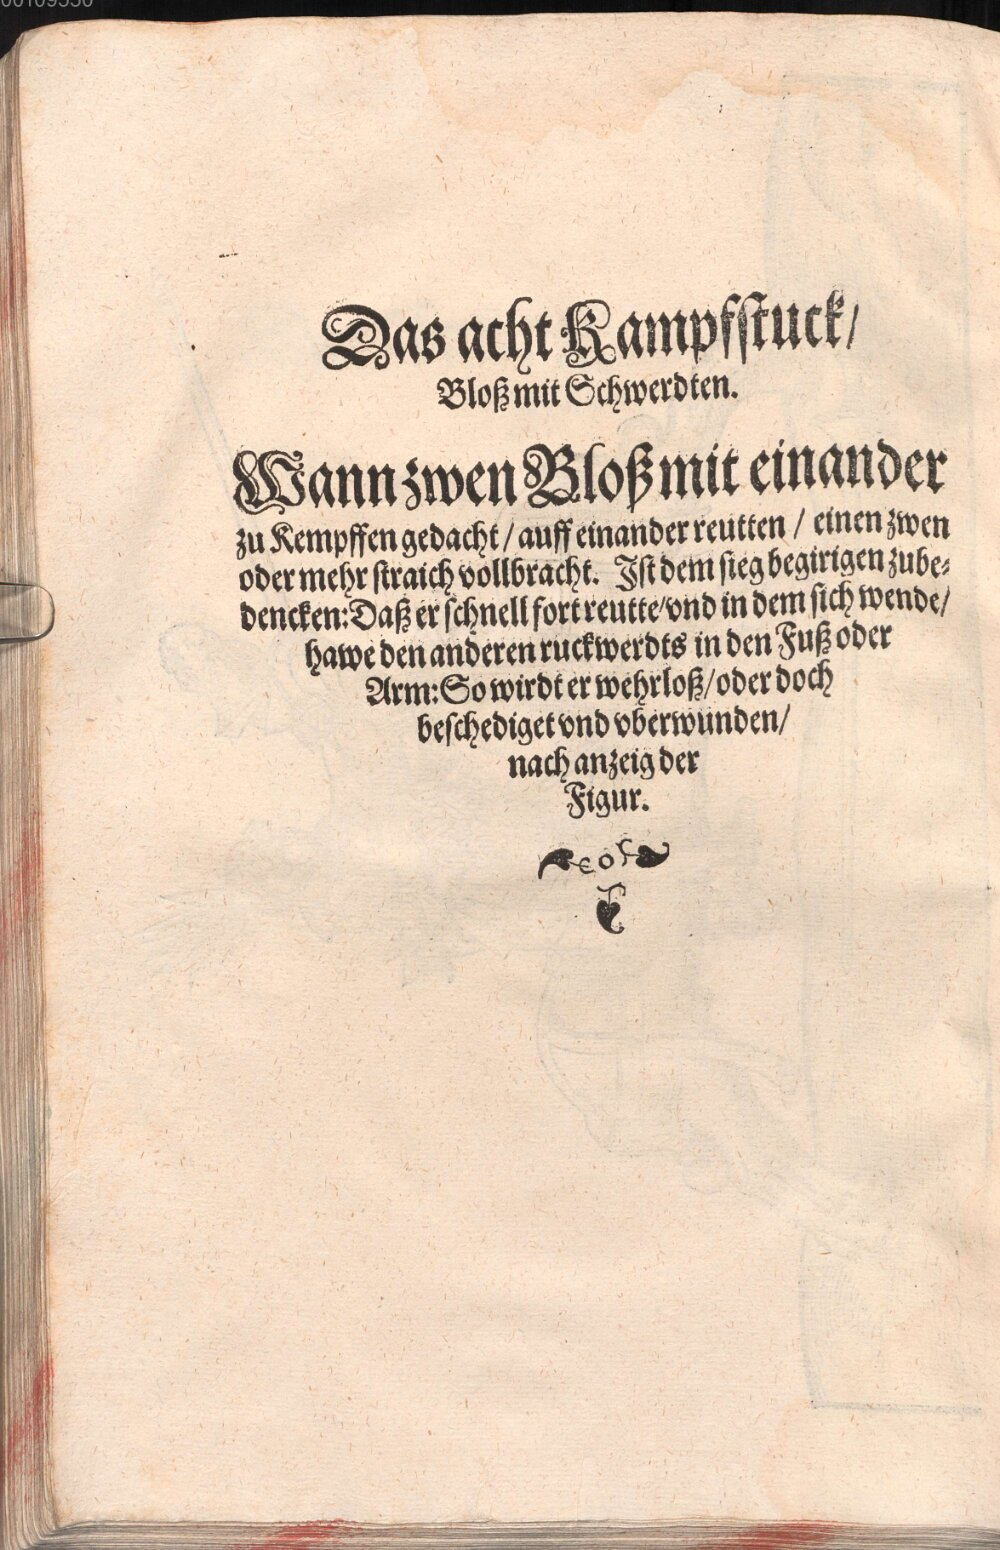 Das acht Kampfstuck/
Bloß mit Schwerdten.
Wann zwen Bloß mit einander
zu Kempffen gedacht / auff einander reutten / einen zwen
oder mehr straich vollbracht. Ist dem sieg begirigen zube⸗
dencken: Daß er schnell fort reutte/vnd in dem sich wende/
hawe den anderen ruckwerdts in den Fuß oder
Arm: So wirdt er wehrloß/oder doch
beschediget vnd vberwunden/
nach anzeig der
Figur.